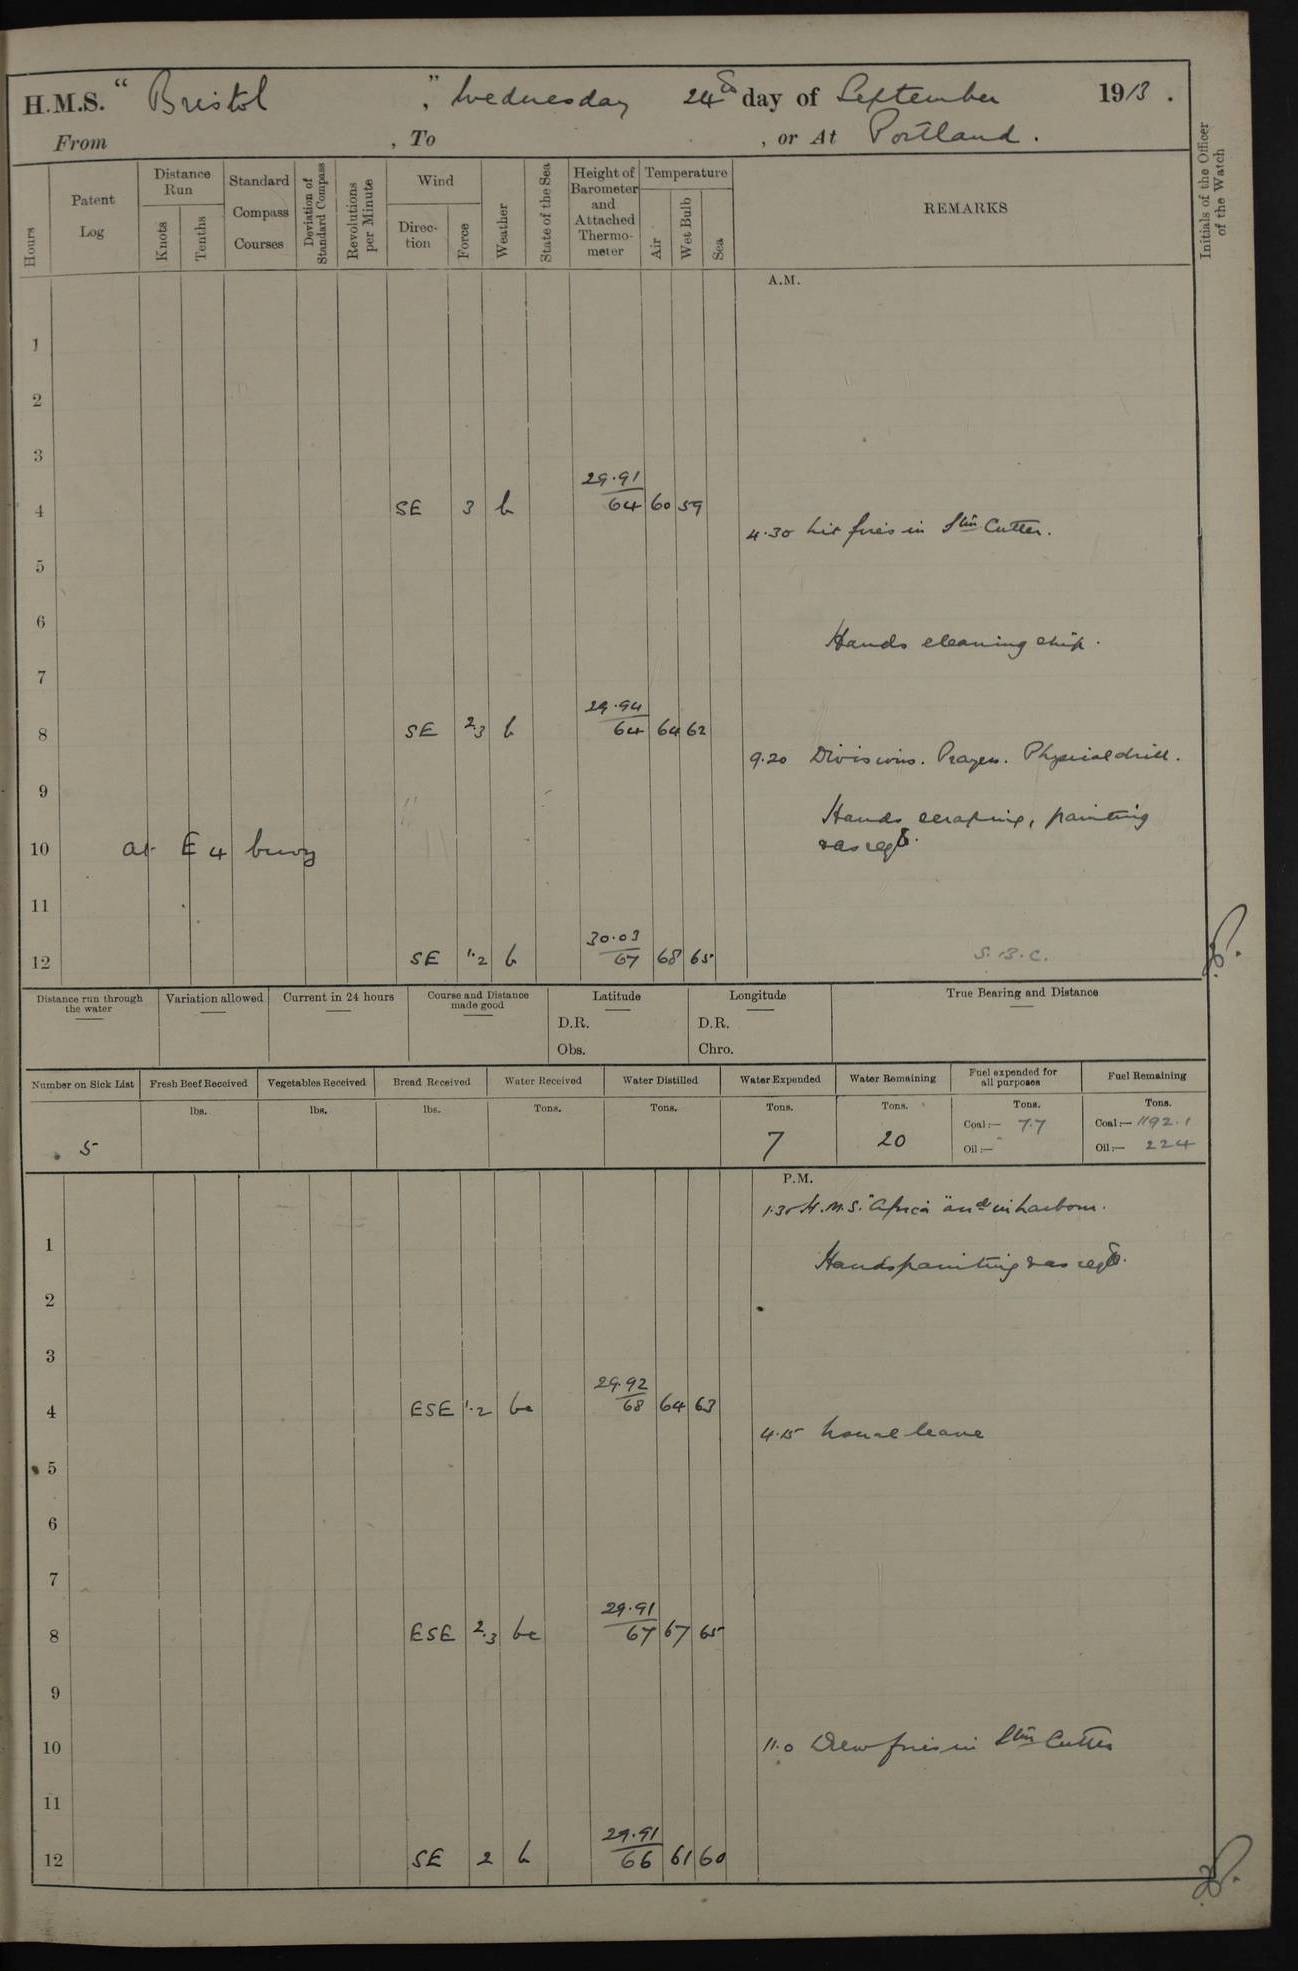 H.M.S. " Bristol ", Wednesday 24th day of September 1913.
From , To , or At Portland.
Hours
Patent Log
Distance Run
Knots
Tenths
Standard Compass Courses
Deviation of Standard Compass
Revolutions per Minute
Wind
Direction
Force
Weather
State of the Sea
Height of Barometer and Attached Thermometer
Temperature
Air
Wet Bulb
Sea
REMARKS
Initials of the Officer of the Watch
A.M.
1
2
3
4 SE 3 b 29.91 64 60 59
4.30 Lit fires in Stm Cutter.
5
6
Hands cleaning ship.
7
8 SE 2.3 b 29.94 64 64 62
9.20 Divisions. Prayers. Physical drill.
9
Hands scraping, painting
10 at E4 buoy
& as reqd.
11
12 SE 1.2 b 30.03 67 68 65
S.B.C.
Distance run through the water
Variation allowed
Current in 24 hours
Course and Distance made good
Latitude
D.R.
Obs.
Longitude
D.R.
Chro.
True Bearing and Distance
Number on Sick List
Fresh Beef Received
Vegetables Received
Bread Received
Water Received
Water Distilled
Water Expended
Water Remaining
Fuel expended for all purposes
Fuel Remaining
lbs. lbs. lbs. Tons. Tons. Tons. Tons. Tons. Tons.
5
7
20
Coal:— 7.7
Oil:—
Coal:— 1192.1
Oil:— 224
P.M.
1.30 H.M.S. "Africa" ancd in harbour.
1
Hands painting & as reqd.
2
3
4 ESE 1.2 bc 29.92 68 64 63
4.15 usual leave
5
6
7
8 ESE 2.3 bc 29.91 67 67 65
9
10
11.0 Drew fires in Stm Cutter
11
12 SE 2 b 29.91 66 61 60